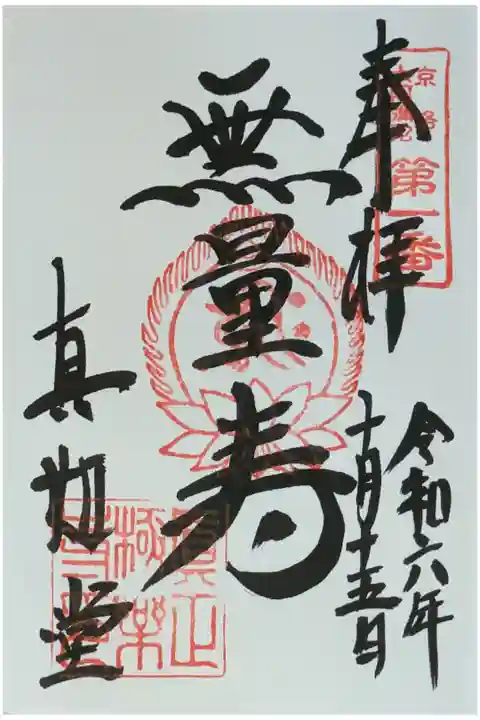 京洛
第一番
奉拝
令和六年
十月十五日
無量寿
真如堂
眞正
極樂